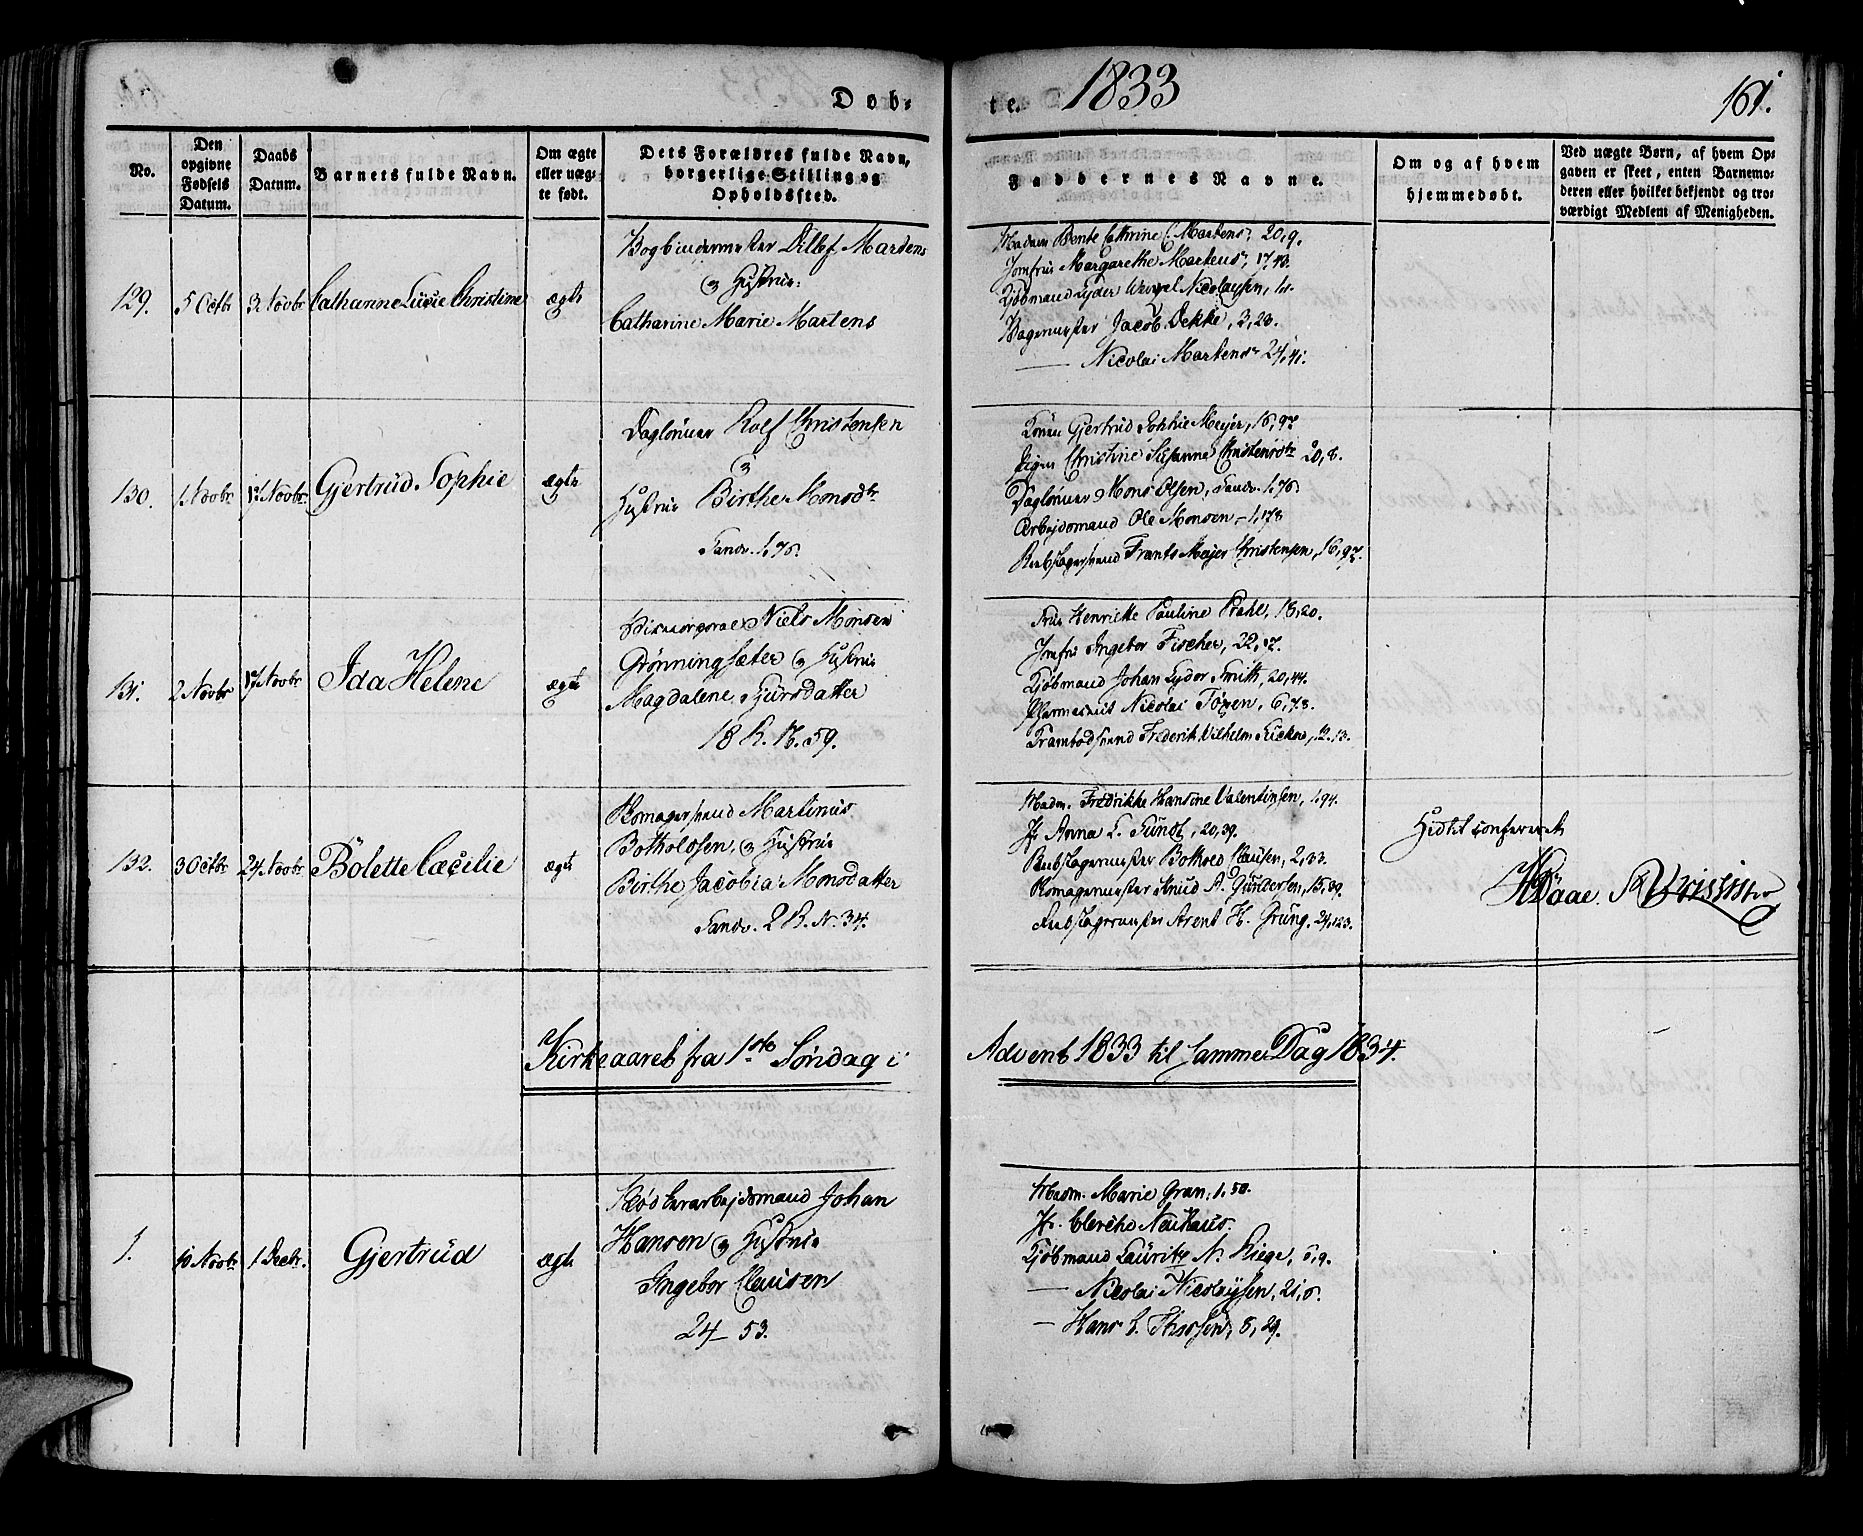 Døb-
te.
1833
161.
No.
Den opgivne Fødsels Datum.
Daabs Datum.
Barnets fulde Navn.
Om ægte eller uægte født.
Dets Forældres fulde Navn, borgerlige Stilling og Opholdssted.
Faddernes Navne.
Om og af hvem hjemmedøbt.
Ved uægte Børn, af hvem Opgaven er skeet, enten Barnemoderen eller hvilket bekjendt og troværdigt Medlem af Menigheden.
129. 5 Octbr 3 Novbr Cathanne Lucie Christine ægte
Bogbindermester Ditlef Martens
og Hustrue
Catharine Marie Martens
Madam Bente Cathrine C. Martens, 20,9.
Jomfrue Margarethe Martens, 17,43.
Kjøbmand Lyder Wenzel Nicolaysen,
Bagermester Jacob Dekke, 3,23.
— Nicolai Martens 24,41.
130. 1 Novbr 17 Novbr Gjertrud Sophie ægte
Dagleiner Rolf Christensen
og
Hustrue Birthe Monsdtr
Sandv. 1,76.
Konen Gjertrud Sophie Meyer, 16,97
Pigen Christine Susanne Christensdtr 20,8.
Dagleiner Mons Olsen, Sandv. 1,76.
Arbejdsmand Ole Monsen - 1,178
Rebslagersvend Frants Mejer Christensen, 16,97.
131. 2 Novbr 17 Novbr Ida Helene ægte
Niels Monsen
Grønningsæter og Hustrue
Magdalene Sjursdatter
18 R. N. 59.
Frue Henriette Pauline Prahl, 18,20.
Jomfru Ingebor Fischer, 22,
Kjøbmand Johan Lyder Smith, 20,44.
Nicolai 6,78.
Krambodsvend Frederik Vilhelm 12.13.
132. 3 Octbr 24 Novbr Bolette Cæcilie ægte
Skomagersvend Martinus
Botholdsen, og Hustrue
Birthe Jacobia Monsdatter
Sandv. 2 R. N. 34.
Madm. Fredrikke Hansine Valentinsen, 1,94.
Jf. Anna C. Sundt, 20,39.
Rebslagermester Bothold Clausen, 2,33.
Skomagermester Knud A. Gundersen, 15,39.
Rebslagermester Arent H. Grung. 24,123.
Hidtil confereret
Kirkeaaret fra 1ste Søndag i Advent 1833 til samme Dag 1834.
1. 10 Novbr 1 Decbr. Gjertrud ægte
Johan
Hansen og Hustrue
Ingebor Clausen
24 - 53.
Madm. Marie Gran, 1,50.
Jf. Neuhaus.
Kjøbmand Lauritz N. Riege, 6,9.
— Nicolai Nicolaysen, 21,6.
— Hans 8,29.